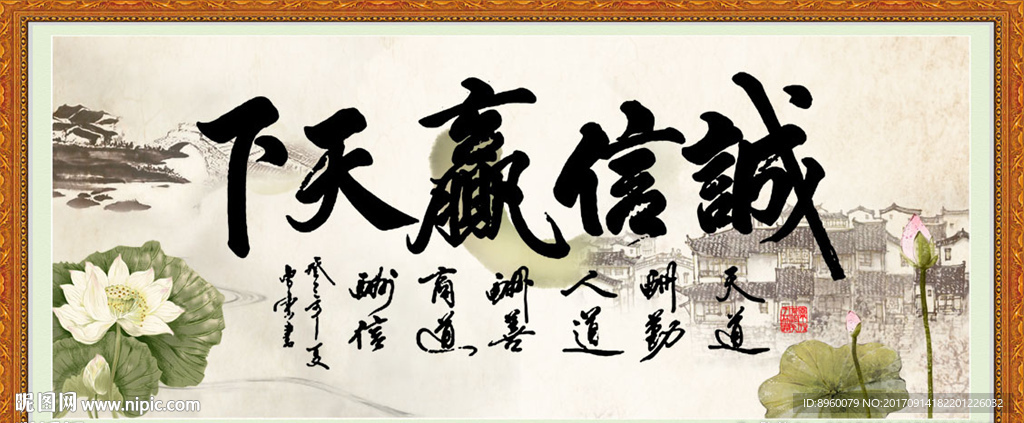 誠信贏天下
天道
酬勤
人道
酬善
商道
酬信
昵图网 www.nipic.com
ID:8960079 NO:20170914182201226032